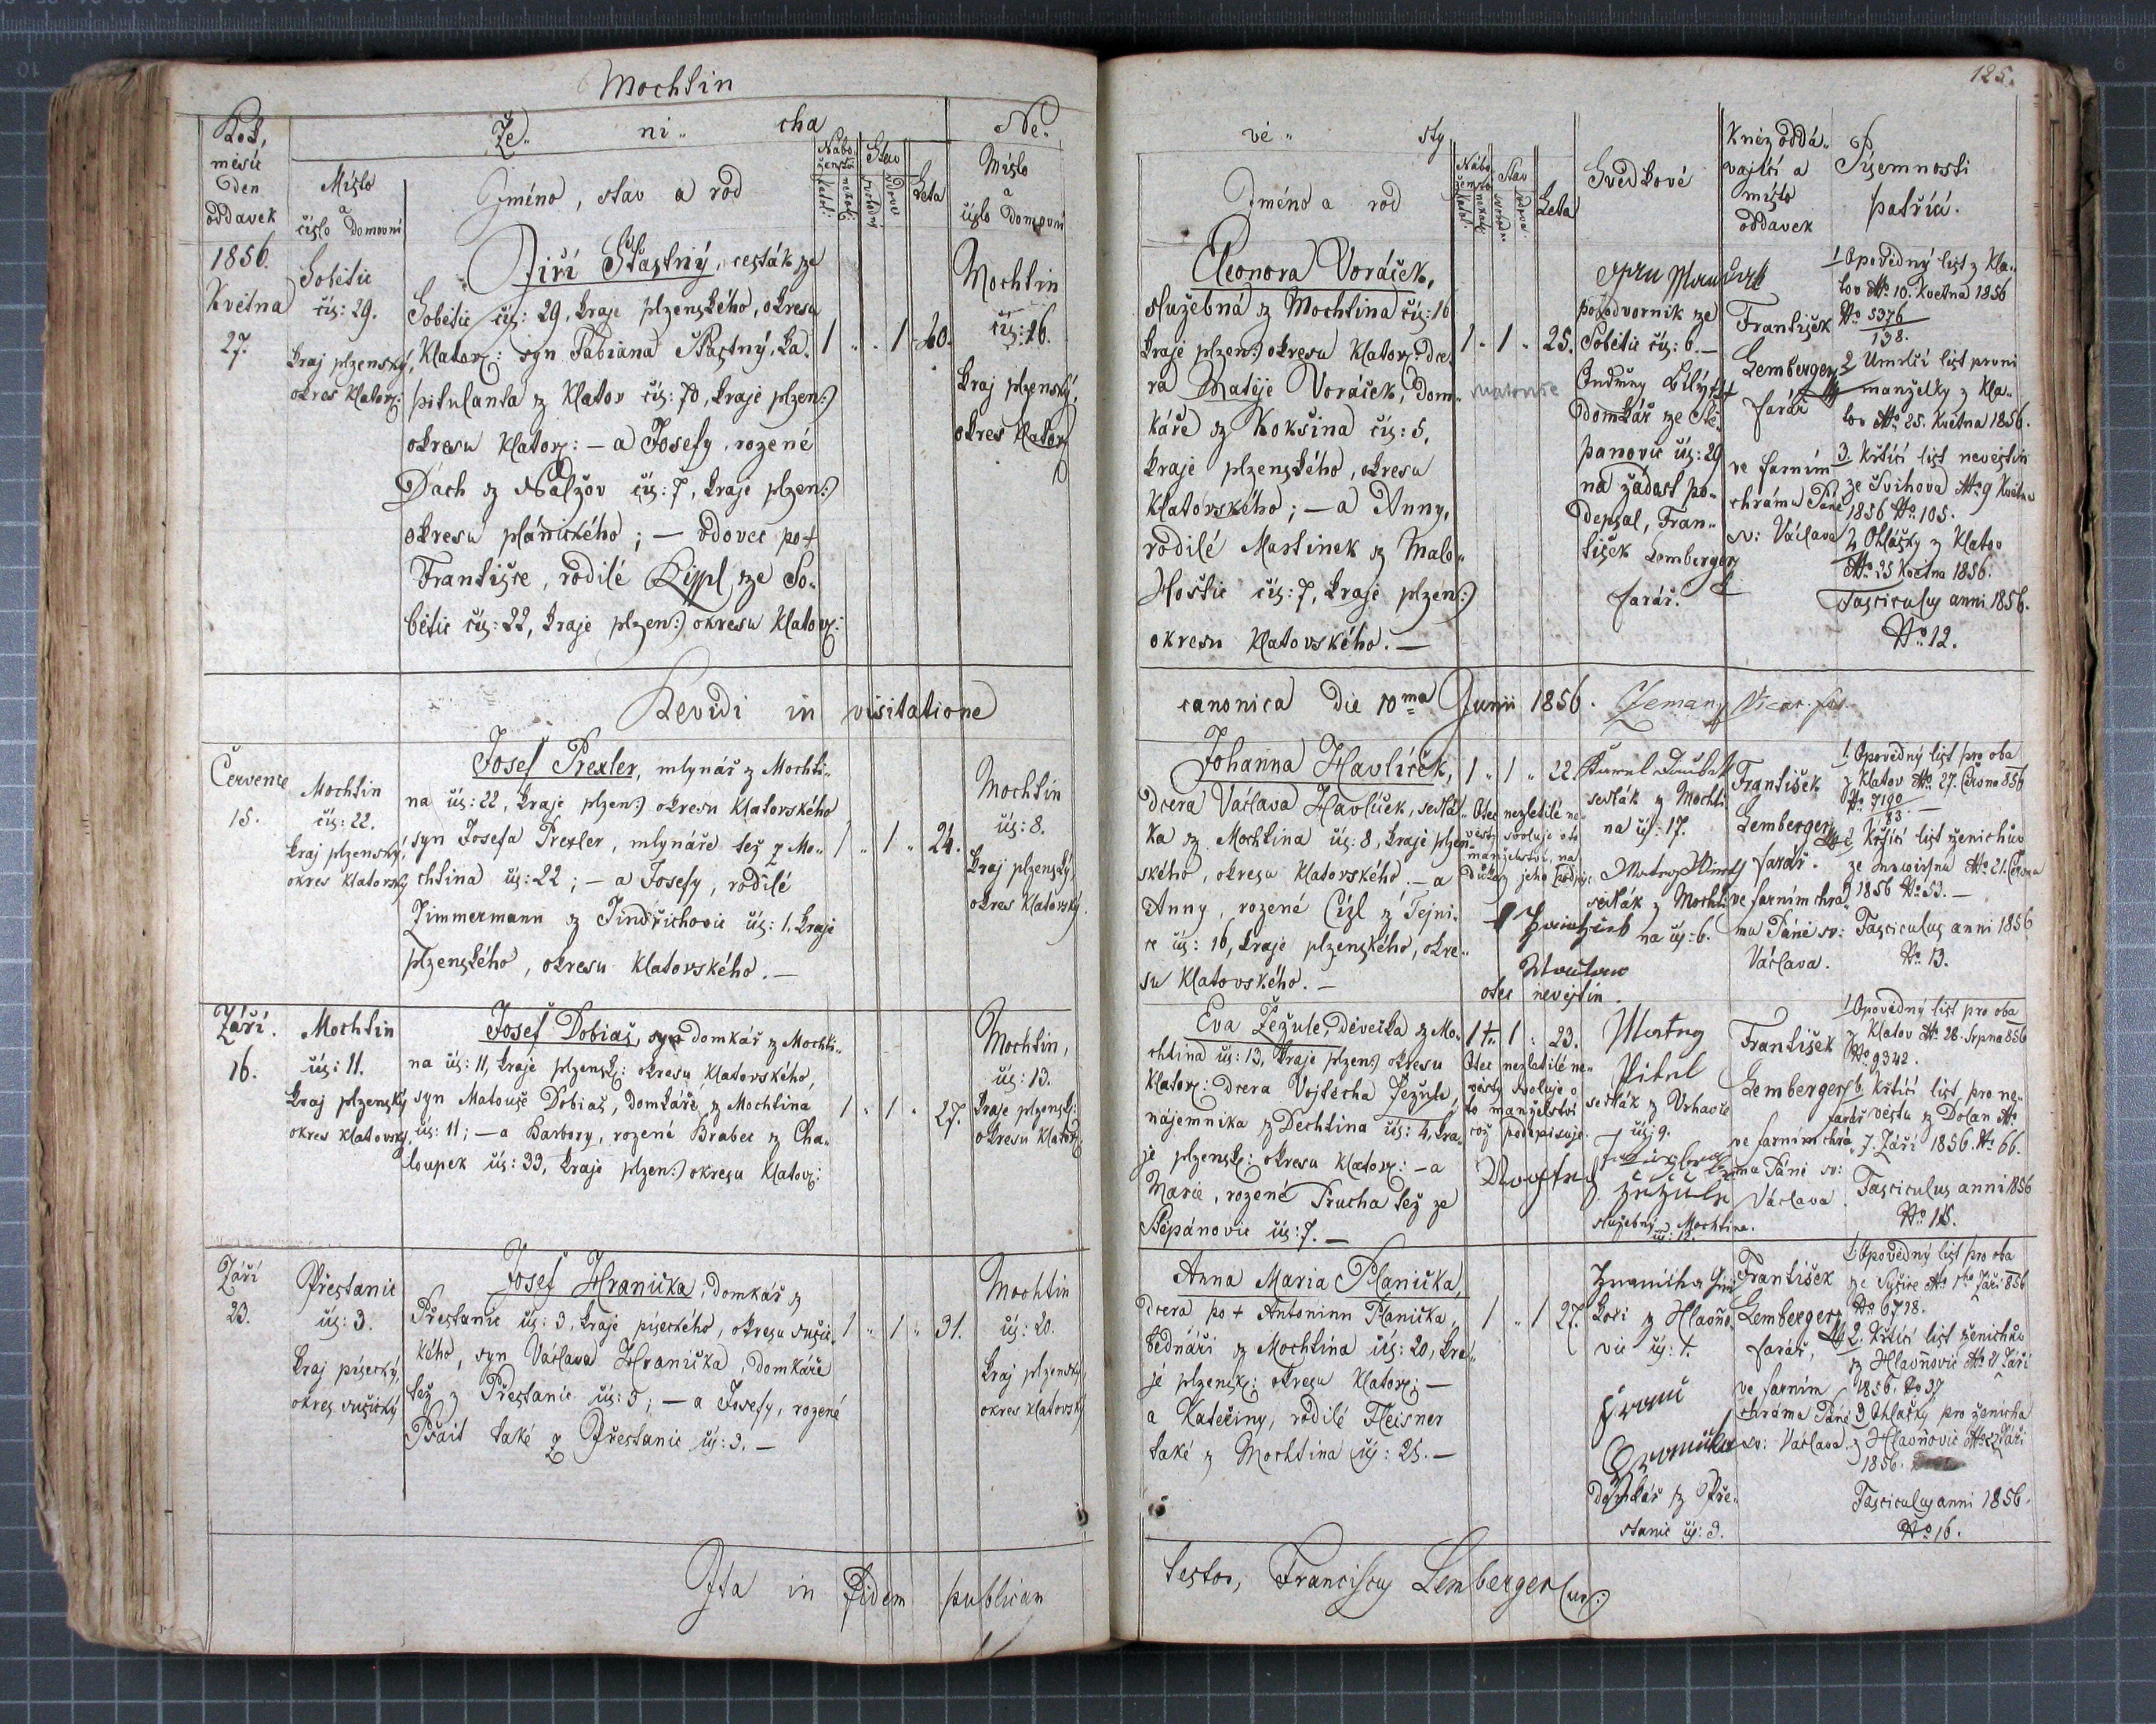 Mochtin
125.
Rok,
měsíc
Den
oddavek
Že- ni- cha
Místo
a
číslo Domovní
Jméno, stav a rod
Nábo-
ženství
katol:
nekatol:
Stav
svobodný
vdovec
Leta
Ne-
Místo
a
číslo Domovní
vě- sty
Jméno a rod
Stav
Leta
Svědkové
kněz oddá-
vající a
místo
oddavek
Písemnosti
patřící.
1856.
Května
27.
Sobětic
čís: 29.
kraj plzenský,
okres Klatovs:
Jiří Šťastný, cesták ze
Sobětic čís: 29, kraje plzenského, okresu
Klatovs: syn Fabiana Šťastný, ka-
pitulanta z Klatov čís: 70, kraje plzen:)
okresu Klatovs: — a Josefy, rozené
Dach z Nalžov čís: 7, kraje plzen:)
okresu plánického; — vdovec po +
Františce, rodilé Lippl ze So-
bětic čís: 22, kraje plzen:) okresu Klatovs:
1 " . 1 40.
Mochtin
čís: 16.
kraj plzenský,
okres Klatovs
Eleonora Voráček,
služebná z Mochtina čís: 16
kraje plzen:) okresu Klatovs: dce-
ra Matěje Voráček, Dom-
káře z Kokšina čís: 5,
kraje plzenského, okresu
Klatovského; — a Anny,
rodilé Martinek z Malo-
Hoštic čís: 7, kraje plzen:)
okresu Klatovského. —
1 . 1 " 25.
podvorník ze
Sobětic čís: 6. —
Ondřey Bílý +++
domkář ze Ště-
panovic čís: 29
na žádost po-
depsal, Fran-
tišek Lemberger
farář.
František
Lemberger
farář
ve farním
chrámu Páně
sv: Václava
1 Opovědný list z Kla-
tov Ao. 10. Května 1856
No 5376
138.
2 Úmrlčí list první
manželky z Kla-
tov Ao. 25. Května 1856.
3. Křticí list nevěstin
ze Švihova Ao. 9 Května
1856 No. 105.
4 Ohlášky z Klatov
Ao. 25 Května 1856.
Fasciculus anni 1856.
No. 12.
Revidi in visitatione canonica die 10ma Junii 1856. Zeman Vicar.
Července
15.
Mochtin
čís: 22.
kraj plzenský,
okres Klatovský
Josef Prexler, mlynář z Mochti-
na čís: 22, kraje plzen:) okresu Klatovského
syn Josefa Prexler, mlynáře též z Mo-
chtina čís: 22; — a Josefy, rodilé
Zimmermann z Jindřichovic čís: 1, kraje
plzenského, okresu Klatovského. —
1 " 1 " 24.
Mochtin
čís: 8.
kraj plzenský,
okres Klatovský.
Johanna Havlíček,
dcera Václava Havlíček, sedlá-
ka z Mochtina čís: 8, kraje plzen-
ského, okresu Klatovského. — a
Anny, rozené Cízl z Tejni-
ce čís: 16, kraje plzenského, okre-
su Klatovského. —
1 " 1 " 22.
Otec nezletilé ne-
věsty svoluje v to
manželství, na
důkaz jeho podpis:
otec nevěstin.
sedlák z Mochti-
na čís: 17.
sedlák z Mochti-
na čís: 6.
František
Lemberger
farář.
ve farním chrá-
mu Páně sv:
Václava.
1. Opovědný list pro oba
z Klatov Ao. 27. Června 856
No. 7190
183
2 Křticí list ženichův
Ao. 21. Června
1856 No. 53. —
Fasciculus anni 1856
No. 13.
Září.
16.
Mochtin
čís: 11.
kraj plzenský
okres Klatovský,
Josef Dobiaš, syn domkář z Mochti-
na čís: 11, kraje plzensk: okresu Klatovského,
syn Matouše Dobiaš, domkáře z Mochtina
čís: 11; — a Barbory, rozené Brabec z Cha-
loupek čís: 33, kraje plzen:) okresu Klatov:
1 " 1 " 27.
Mochtin,
čís: 13.
kraje plzensk:
okresu Klatovs:
Eva Žežule, děvečka z Mo-
chtina čís: 13, kraje plzen:) okresu
Klatovs: dcera Vojtěcha Žežule,
nájemníka z Dechtina čís: 4, kra-
je plzensk: okresu Klatovs: — a
Marie, rozené Prucha též ze
Štěpánovic čís: 7. —
1 " 1 : 23.
Otec nezletilé ne-
věsty svoluje v
to manželství
což podepisuje.
Pitul
sedlák z Vrhavče
čís: 9.
služebný z Mochtina.
čís: 12.
František
Lemberger
farář
ve farním chrá-
mu Páně sv:
Václava.
1 Opovědný list pro oba
z Klatov Ao. 28. Srpna 856
No 9342.
b. Křticí list pro ne-
věstu z Dolan Ao.
7. Září 1856. No. 66.
Fasciculus anni 1856
No. 15.
Září
23.
Přestanic
čís: 3.
kraj písecký,
okres sušický
Josef Hranička, domkář z
Přestanic čís: 3, kraje píseckého, okresu sušic-
kého, syn Václava Hranička, domkáře
též z Přestanic čís: 3; — a Josefy, rozené
Pšait také z Přestanic čís: 3. —
1 " 1 " 31.
Mochtin
čís: 20.
kraj plzenský,
okres Klatovský
Anna Maria Planička,
dcera po + Antonínu Planička,
bednáři z Mochtina čís: 20, kra-
je plzensk: okresu Klatovs: —
a Kateřiny, rodilé Fleisner
také z Mochtina čís: 25. —
1 " 1 27.
z Hlavňo-
vic čís: 1.
domkář z Pře-
stanic čís: 3.
František
Lemberger
farář,
ve farním
chrámu Páně
sv: Václava.
1. Opovědný list pro oba
ze Sušice Ao. 1ho Září 856
No 6728.
2. Křticí list ženichův
z Hlavňovic Ao. 21 Září
1856. No 37
3 Ohlášky pro ženicha
z Hlavňovic Ao. 22 Září
1856.
Fasciculus anni 1856.
No. 16.
Ita in Fidem publicam testor, Franciscus Lemberger